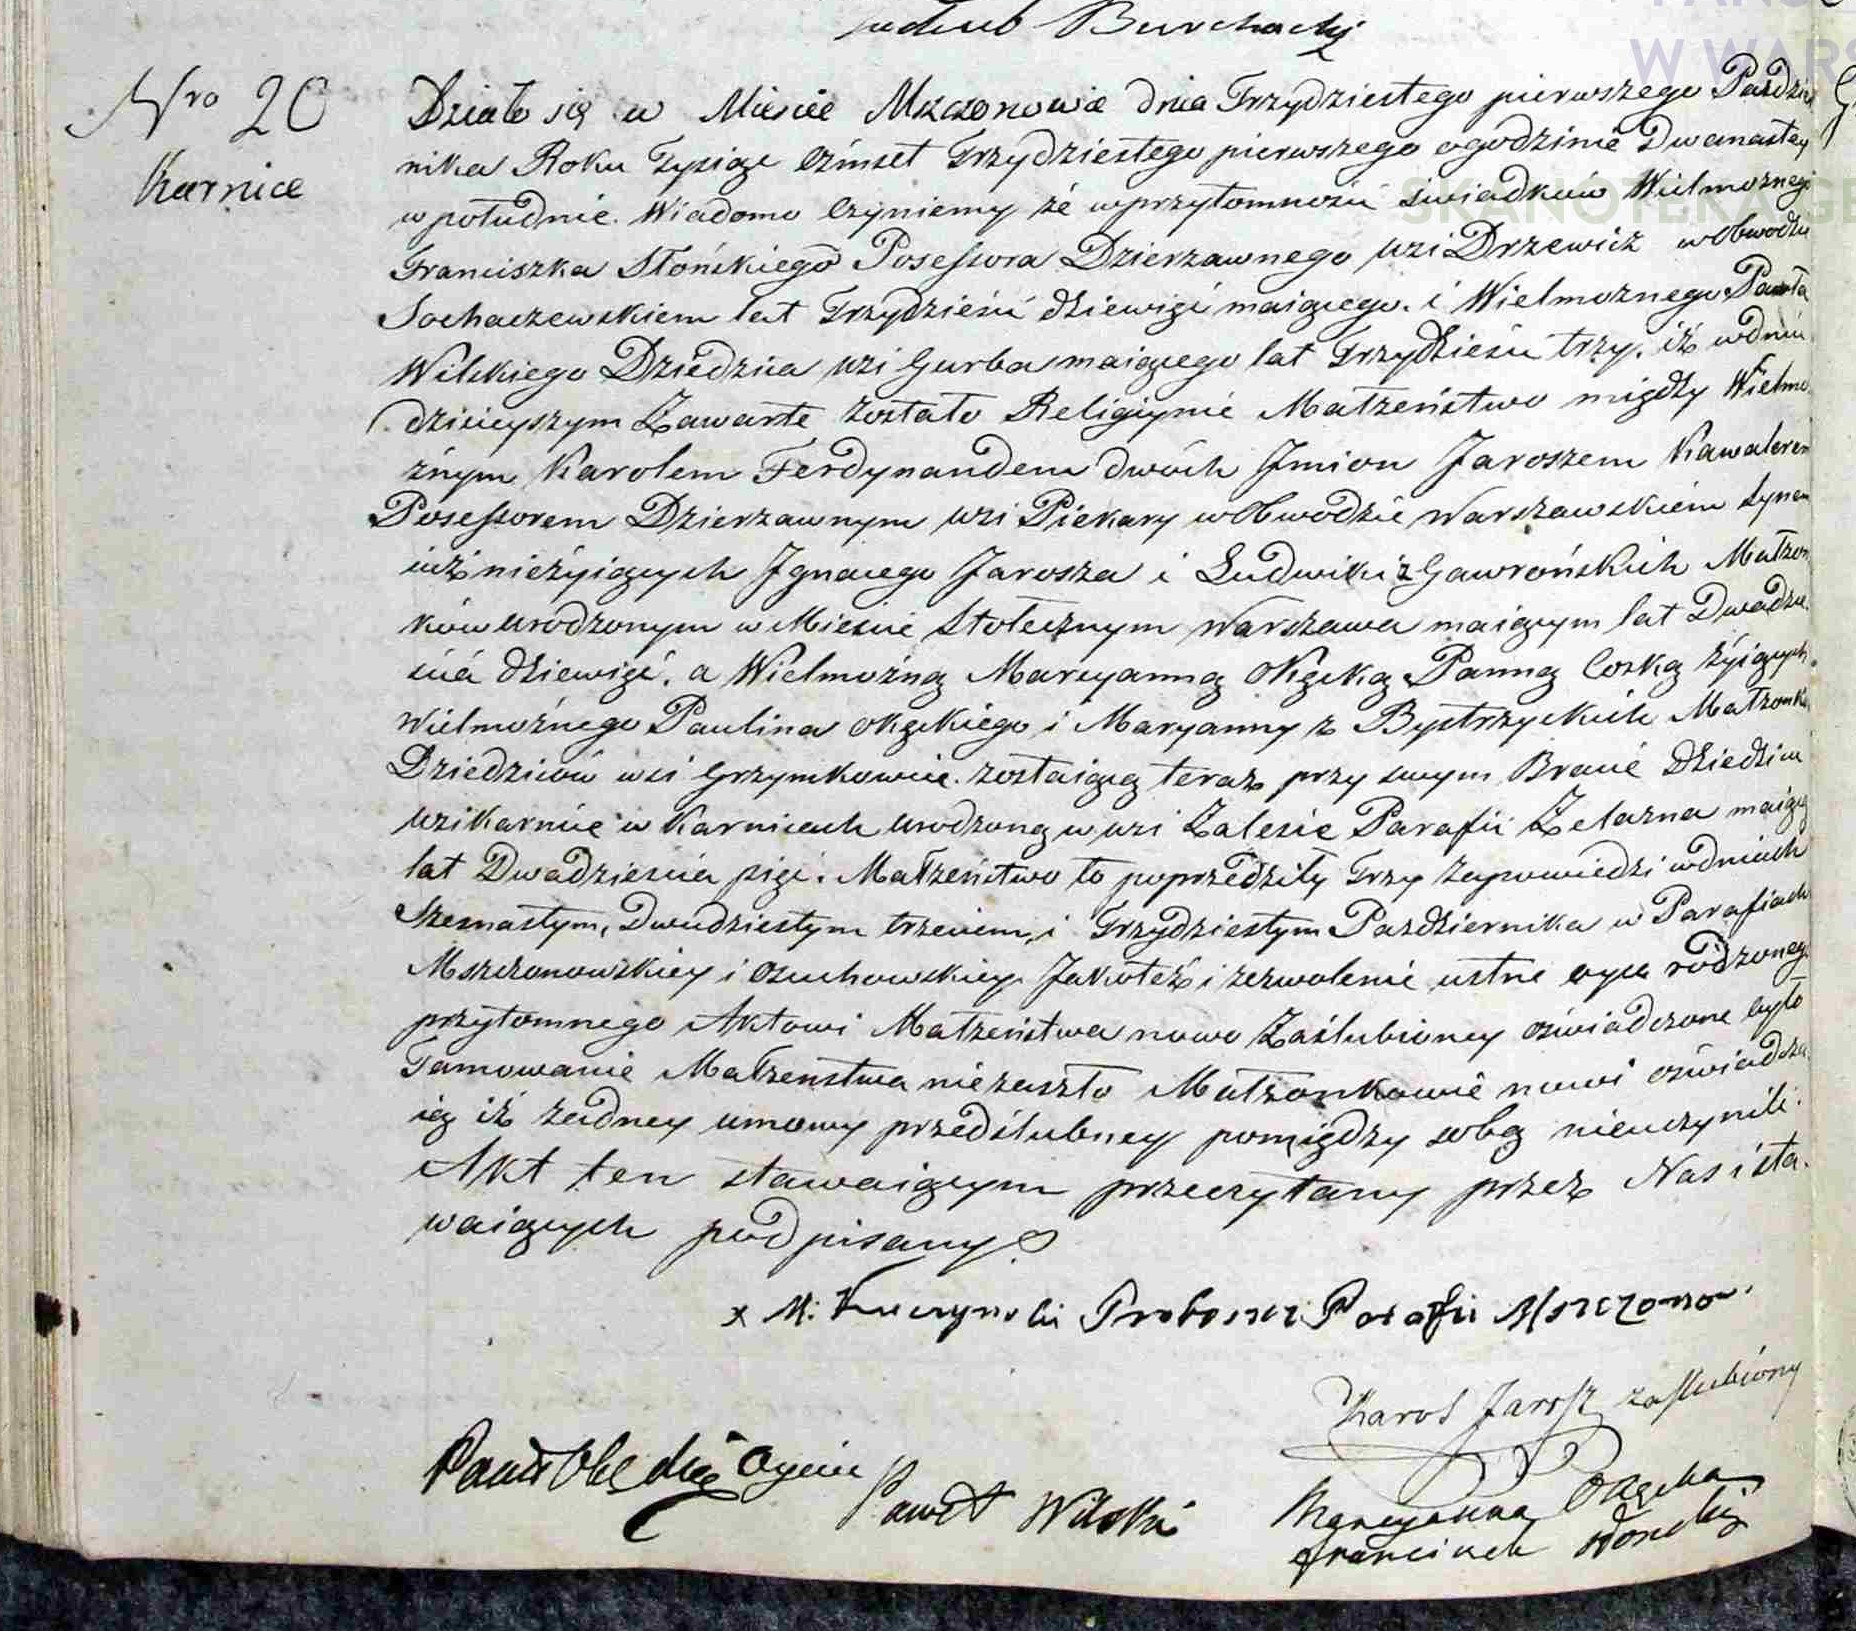 Burchacky
W WARS
SKANOTEKA.GE
Nro 20
Karnice
Działo się w Mieście Mszczonowie dnia Trzydziestego pierwszego Paździer
nika Roku Tysiąc Ośmset Trzydziestego pierwszego o godzinie Dwanastey
w południe. Wiadomo Czyniemy że w przytomności świadków Wielmożnego
Franciszka Słońskiego Posessora Dzierzawnego wsi Drzewicz w Obwodzie
Sochaczewskiem lat Trzydzieści dziewięć maiącego. i Wielmoznego Pawła
Wilskiego Dziedzica wsi Gurba maiącego lat Trzydzieści trzy. iż w dniu
dzisieyszym Zawarte zostało Religiynie Małżeństwo między Wielmo
żnym Karolem Ferdynandem dwóch Jmion Jaroszem Kawalerem
Posessorem Dzierzawnym wsi Piekary w Obwodzie Warszawskiém synem
iuż nieżyiących Jgnacego Jarosza i Ludwiki z Gawrońskich Małżon
ków urodzonym w Mieście Stołecznym Warszawa maiącym lat Dwadzie
ścia dziewięć. a Wielmożną Maryanną Okęcką Panną Corką żyiących
Wielmożnego Paulina Okęckiego i Maryanny z Bystrzyckich Małżonków
Dziedziców wsi Grzymkowice. zostaiącą teraz przy swym Bracie Dziedzicu
wsi Karnice w Karnicach urodzoną w wsi Zalesie Parafii Zelazna maiącą
lat Dwadzieścia pięć. Małżeństwo to poprzedziły Trzy Zapowiedzi w dniach
Szesnastym, Dwudziestym trzeciem, i Trzydziestym Pazdziernika w Parafiach
Mszczonowskiey i Osuchowskiey Jakoteż i zezwolenie ustne oyca rodzonego
przytomnego Aktowi Małżeństwa nowo Zaślubioney oświadczone było
Tamowanie Małżenstwa nie zaszło Małżonkowie nowi oświadcza
ią iż żadney umowy przedślubney pomiędzy sobą nieuczynili.
Akt ten stawaiącym przeczytany przez Nas i sta
waiących podpisany
x M: Kuczynski Proboszcz Parafii Mszczonow.
Karol Jarosz zaślubiony
Oyciec
Paweł Wilski
Maryanna Okęcka
Franciszek Słonski